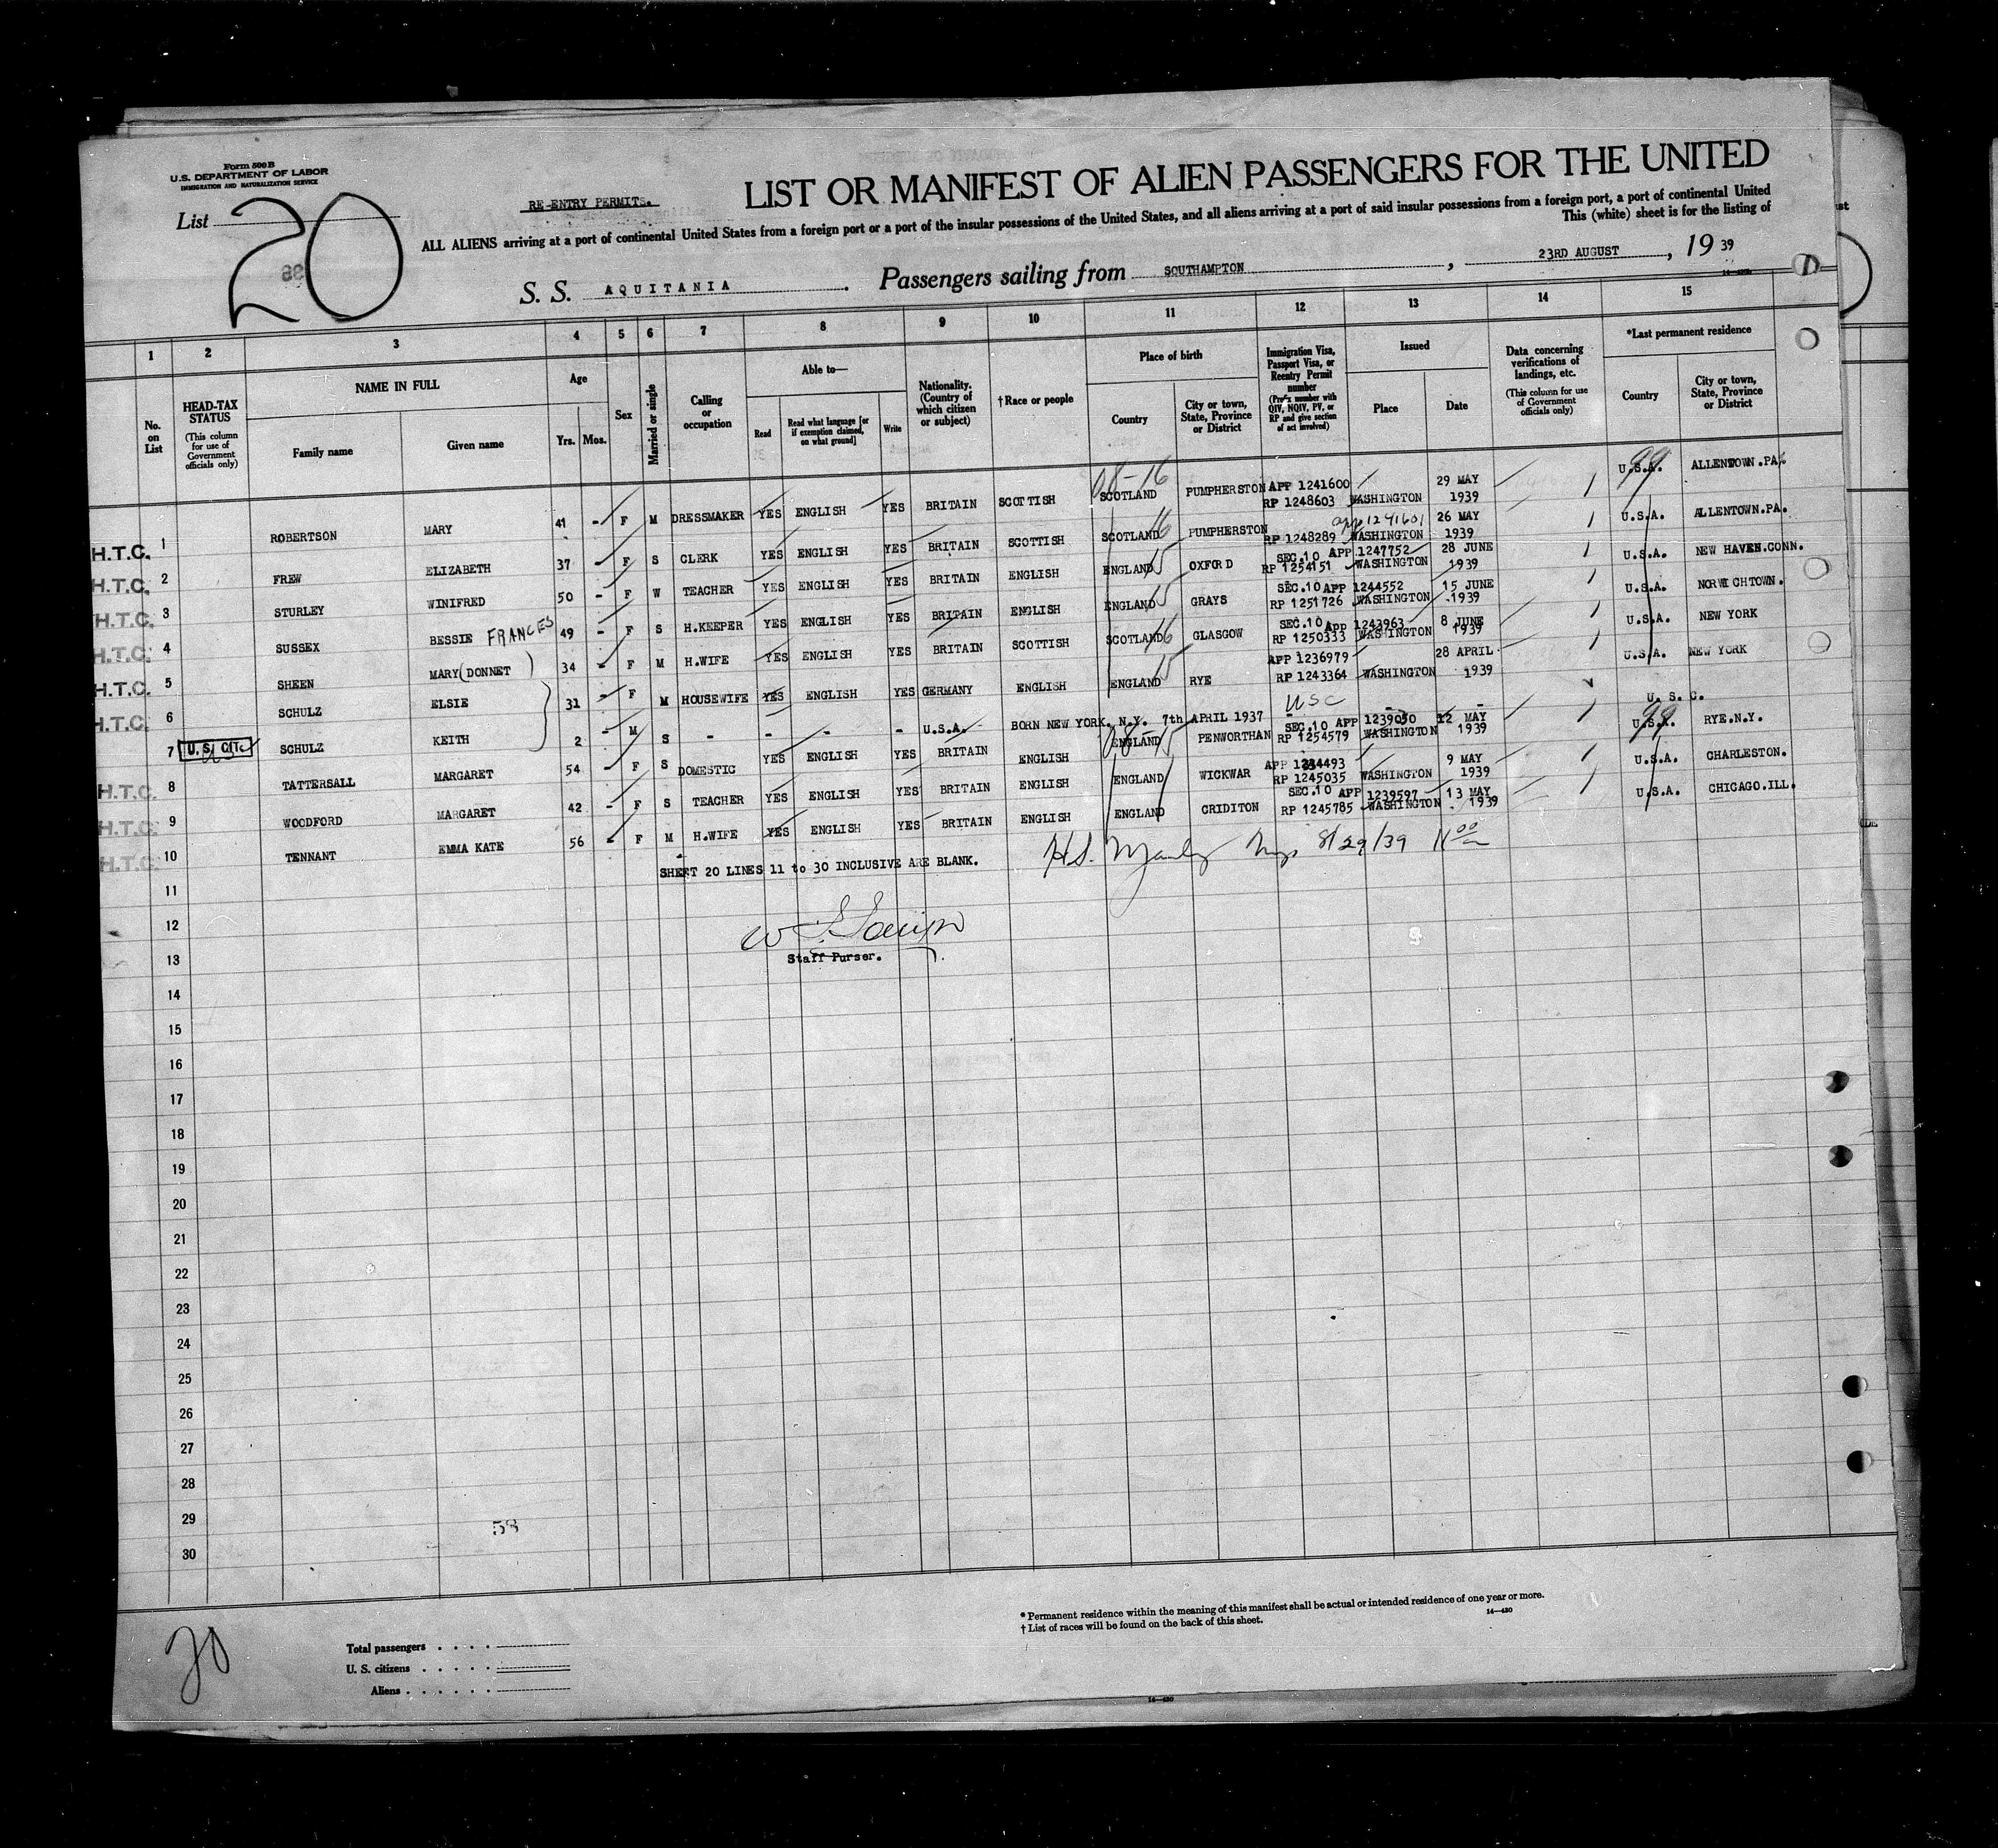 Form 500 B
U.S. DEPARTMENT OF LABOR
IMMIGRATION AND NATURALIZATION SERVICE
List 20
RE-ENTRY PERMITS.
LIST OR MANIFEST OF ALIEN PASSENGERS FOR THE UNITED
ALL ALIENS arriving at a port of continental United States from a foreign port or a port of the insular possessions of the United States, and all aliens arriving at a port of said insular possessions from a foreign port, a port of continental United
This (white) sheet is for the listing of
S. S. AQUITANIA. Passengers sailing from SOUTHAMPTON, 23RD AUGUST, 19 39
1 2 3 4 5 6 7 8 9 10 11 12 13 14 15
No. on List
HEAD-TAX STATUS
(This column for use of Government officials only)
NAME IN FULL
Family name
Given name
Age
Yrs.
Mos.
Sex
Married or single
Calling or occupation
Able to—
Read
Read what language [or if exemption claimed, on what ground]
Write
Nationality. (Country of which citizen or subject)
†Race or people
Place of birth
Country
City or town, State, Province or District
Immigration Visa, Passport Visa, or Reentry Permit number
(Prefix number with QIV, NQIV, PV, or RP and give section of act involved)
Issued
Place
Date
Data concerning verifications of landings, etc.
(This column for use of Government officials only)
*Last permanent residence
Country
City or town, State, Province or District
H.T.C. 1 ROBERTSON MARY 41 - F M DRESSMAKER YES ENGLISH YES BRITAIN SCOTTISH SCOTLAND PUMPHERSTON APP 1241600 RP 1248603 WASHINGTON 29 MAY 1939 U.S.A. ALLENTOWN.PA.
H.T.C. 2 FREW ELIZABETH 37 - F S CLERK YES ENGLISH YES BRITAIN SCOTTISH SCOTLAND 16 PUMPHERSTON app 1241601 RP 1248289 WASHINGTON 26 MAY 1939 U.S.A. ALLENTOWN.PA.
H.T.C. 3 STURLEY WINIFRED 50 - F W TEACHER YES ENGLISH YES BRITAIN ENGLISH ENGLAND 15 OXFORD SEC.10 APP 1247752 RP 1254151 WASHINGTON 28 JUNE 1939 U.S.A. NEW HAVEN.CONN.
H.T.C. 4 SUSSEX BESSIE FRANCES 49 - F S H.KEEPER YES ENGLISH YES BRITAIN ENGLISH ENGLAND 15 GRAYS SEC.10 APP 1244552 RP 1251726 WASHINGTON 15 JUNE 1939 U.S.A. NORWICHTOWN.
H.T.C. 5 SHEEN MARY (DONNET) 34 - F M H.WIFE YES ENGLISH YES BRITAIN SCOTTISH SCOTLAND 16 GLASGOW SEC.10 APP 1243963 RP 1250333 WASHINGTON 8 JUNE 1939 U.S.A. NEW YORK
H.T.C. 6 SCHULZ ELSIE 31 - F M HOUSEWIFE YES ENGLISH YES GERMANY ENGLISH ENGLAND 15 RYE APP 1236979 RP 1243364 WASHINGTON 28 APRIL 1939 U.S.A. NEW YORK
7 U.S. CIT. SCHULZ KEITH 2 - M S - - - - U.S.A. BORN NEW YORK. N.Y. 7th APRIL 1937 USC - - - U. S. C.
H.T.C. 8 TATTERSALL MARGARET 54 - F S DOMESTIC YES ENGLISH YES BRITAIN ENGLISH ENGLAND PENWORTHAN SEC.10 APP 1239030 RP 1254579 WASHINGTON 12 MAY 1939 U.S.A. RYE.N.Y.
H.T.C. 9 WOODFORD MARGARET 42 - F S TEACHER YES ENGLISH YES BRITAIN ENGLISH ENGLAND WICKWAR RP 1245035 WASHINGTON 9 MAY 1939 U.S.A. CHARLESTON.
H.T.C. 10 TENNANT EMMA KATE 56 - F M H.WIFE YES ENGLISH YES BRITAIN ENGLISH ENGLAND CRIDITON SEC.10 APP 1239597 RP 1245785 WASHINGTON 13 MAY 1939 U.S.A. CHICAGO.ILL.
SHEET 20 LINES 11 to 30 INCLUSIVE ARE BLANK.
8/29/39 11 00
11
12
Staff Purser.
13
14
15
16
17
18
19
20
21
22
23
24
25
26
27
28
29
58
30
20
Total passengers
U. S. citizens
Aliens
* Permanent residence within the meaning of this manifest shall be actual or intended residence of one year or more.
† List of races will be found on the back of this sheet.
14—430
14—430